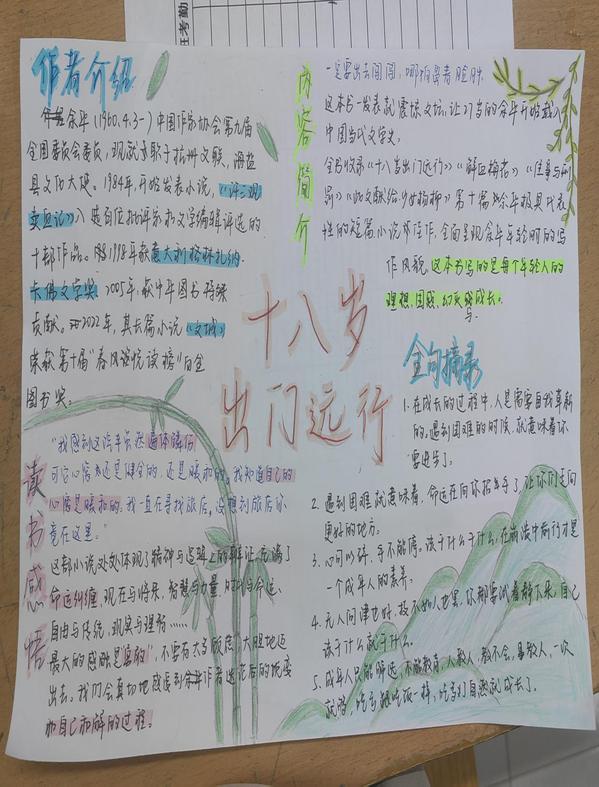 任考勤
作者介绍
余华(1960.4.3一)中国作家协会第九届
全国委员会委员，现就职于杭州文联，海盐
县文化大使。1984年，开始发表小说，《许三观
卖血记》入选百位批评家和文学编辑评选的
十部作品。1998年获意大利格林扎纳
卡佛文学奖，2005年，获中华图书特殊
贡献。2022年，其长篇小说《文城》
荣获第十届"春风悦读榜"白金
图书奖。
内容简介
一定要出去闯闯，哪怕
这本书一发表就震惊文坛，让27岁的余华开始载入
中国当代文学史。
全书收录《十八岁出门远行》《鲜血梅花》《往事与刑
罚》《此文献给少女杨柳》等十篇余华极具代表
性的短篇小说佳作，全面呈现余华年轻时的写
作风貌，这本书写的是每个年轻人的
理想，困惑，幻灭与成长。
十八岁
出门远行
金句摘录
1. 在成长的过程中，人是需要自我革新
的，遇到困难的时候，就意味着你
要进步了。
2. 遇到困难就意味着，命运在向你招手了，让你们走向
更好的地方。
3. 心可以碎，手不能停。该干什么干什么，在崩溃中前行才是
一个成年人的素养。
4. 无人问津也好，技不如人也罢，你都要试着静下来，自己
该干什么就干什么。
5. 成年人只能筛选，不能教育，人教人，教不会，事教人，一次
就够，吃亏跟吃饭一样，吃多了自然就成长了。
读书感悟
"我感到这汽车虽然遍体鳞伤，
可它心窝还是健全的，还是暖和的。我知道自己的
心窝是暖和的。我一直在寻找旅店，没想到旅店你
竟在这里。"
这部小说处处体现了精神与逻辑上的辩证，充满了
命运纠缠，现在与将来，智慧与力量，时代与命运、
自由与传统，现实与理想……
最大的感触是"，不要有太多顾虑"大胆地迈
出去。我们会真切地感受到作者迷茫后的蜕变
和自己和解的过程。